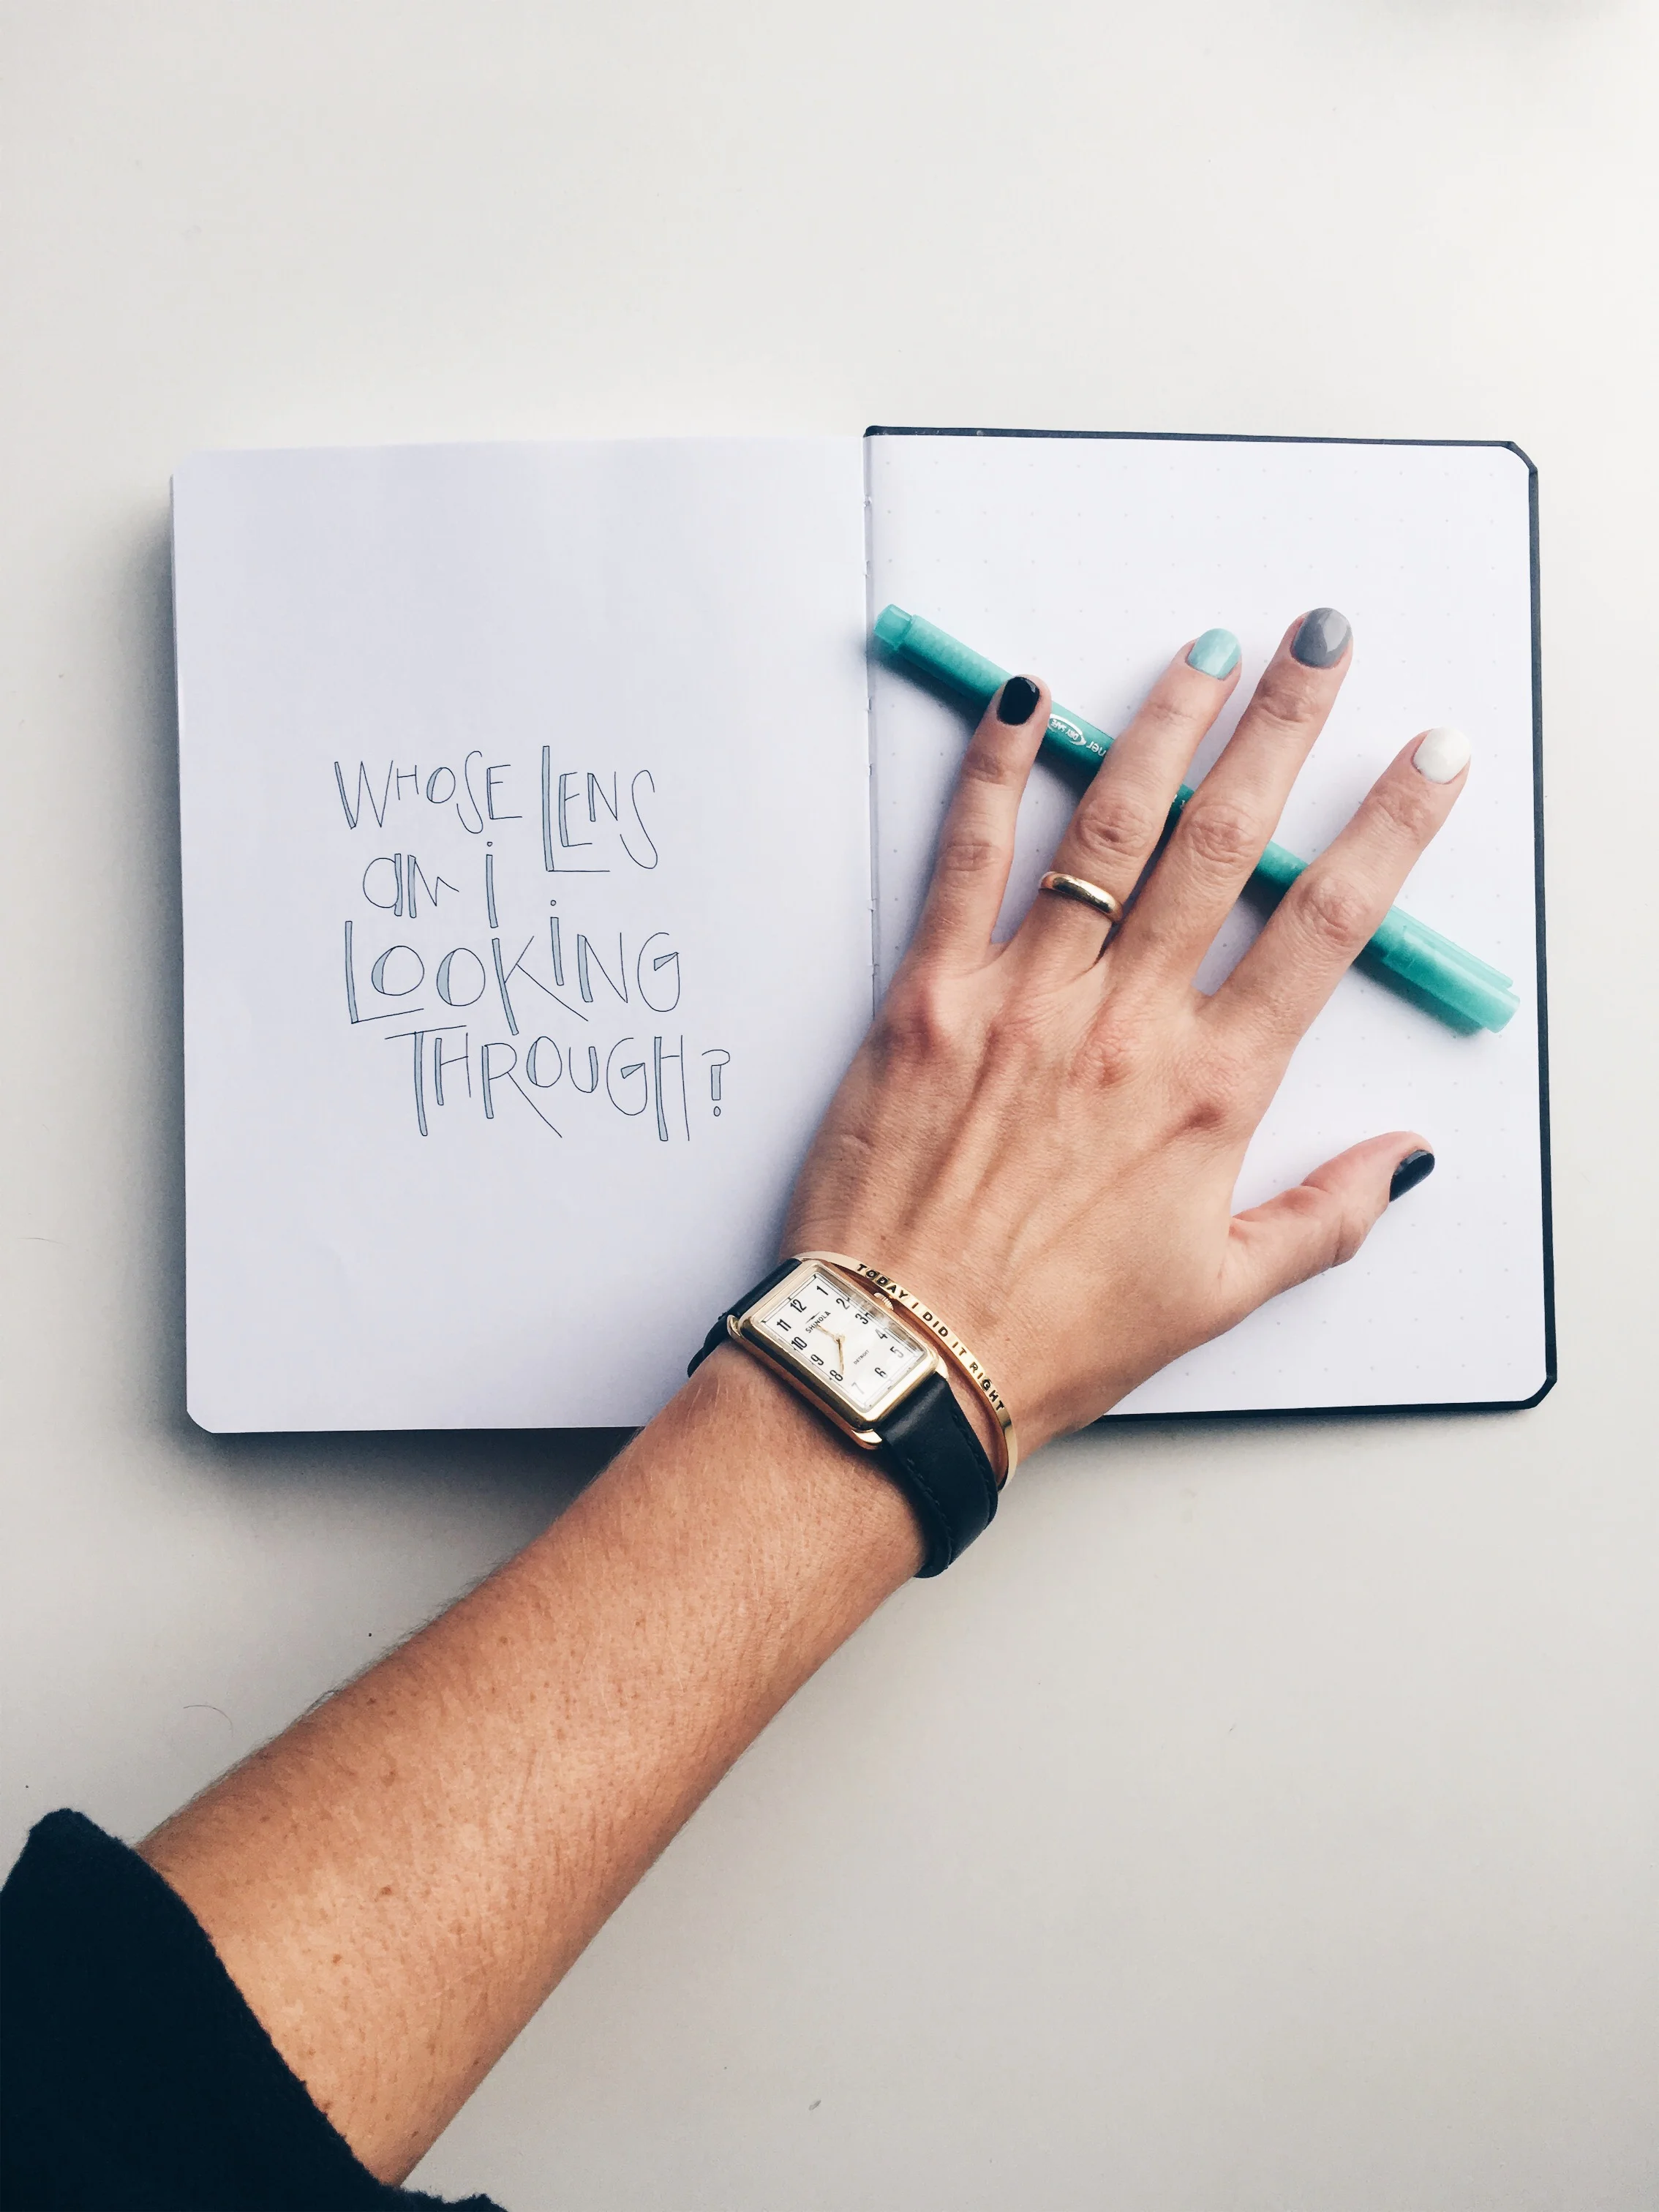 WHOSE LENS
am i
LOOKiNG
THROUGH?
DRY SAFE
ner
TODAY I DID IT RIGHT
12 1 2 3 4 5 6 7 8 9 10 11
SHINOLA
DETROIT